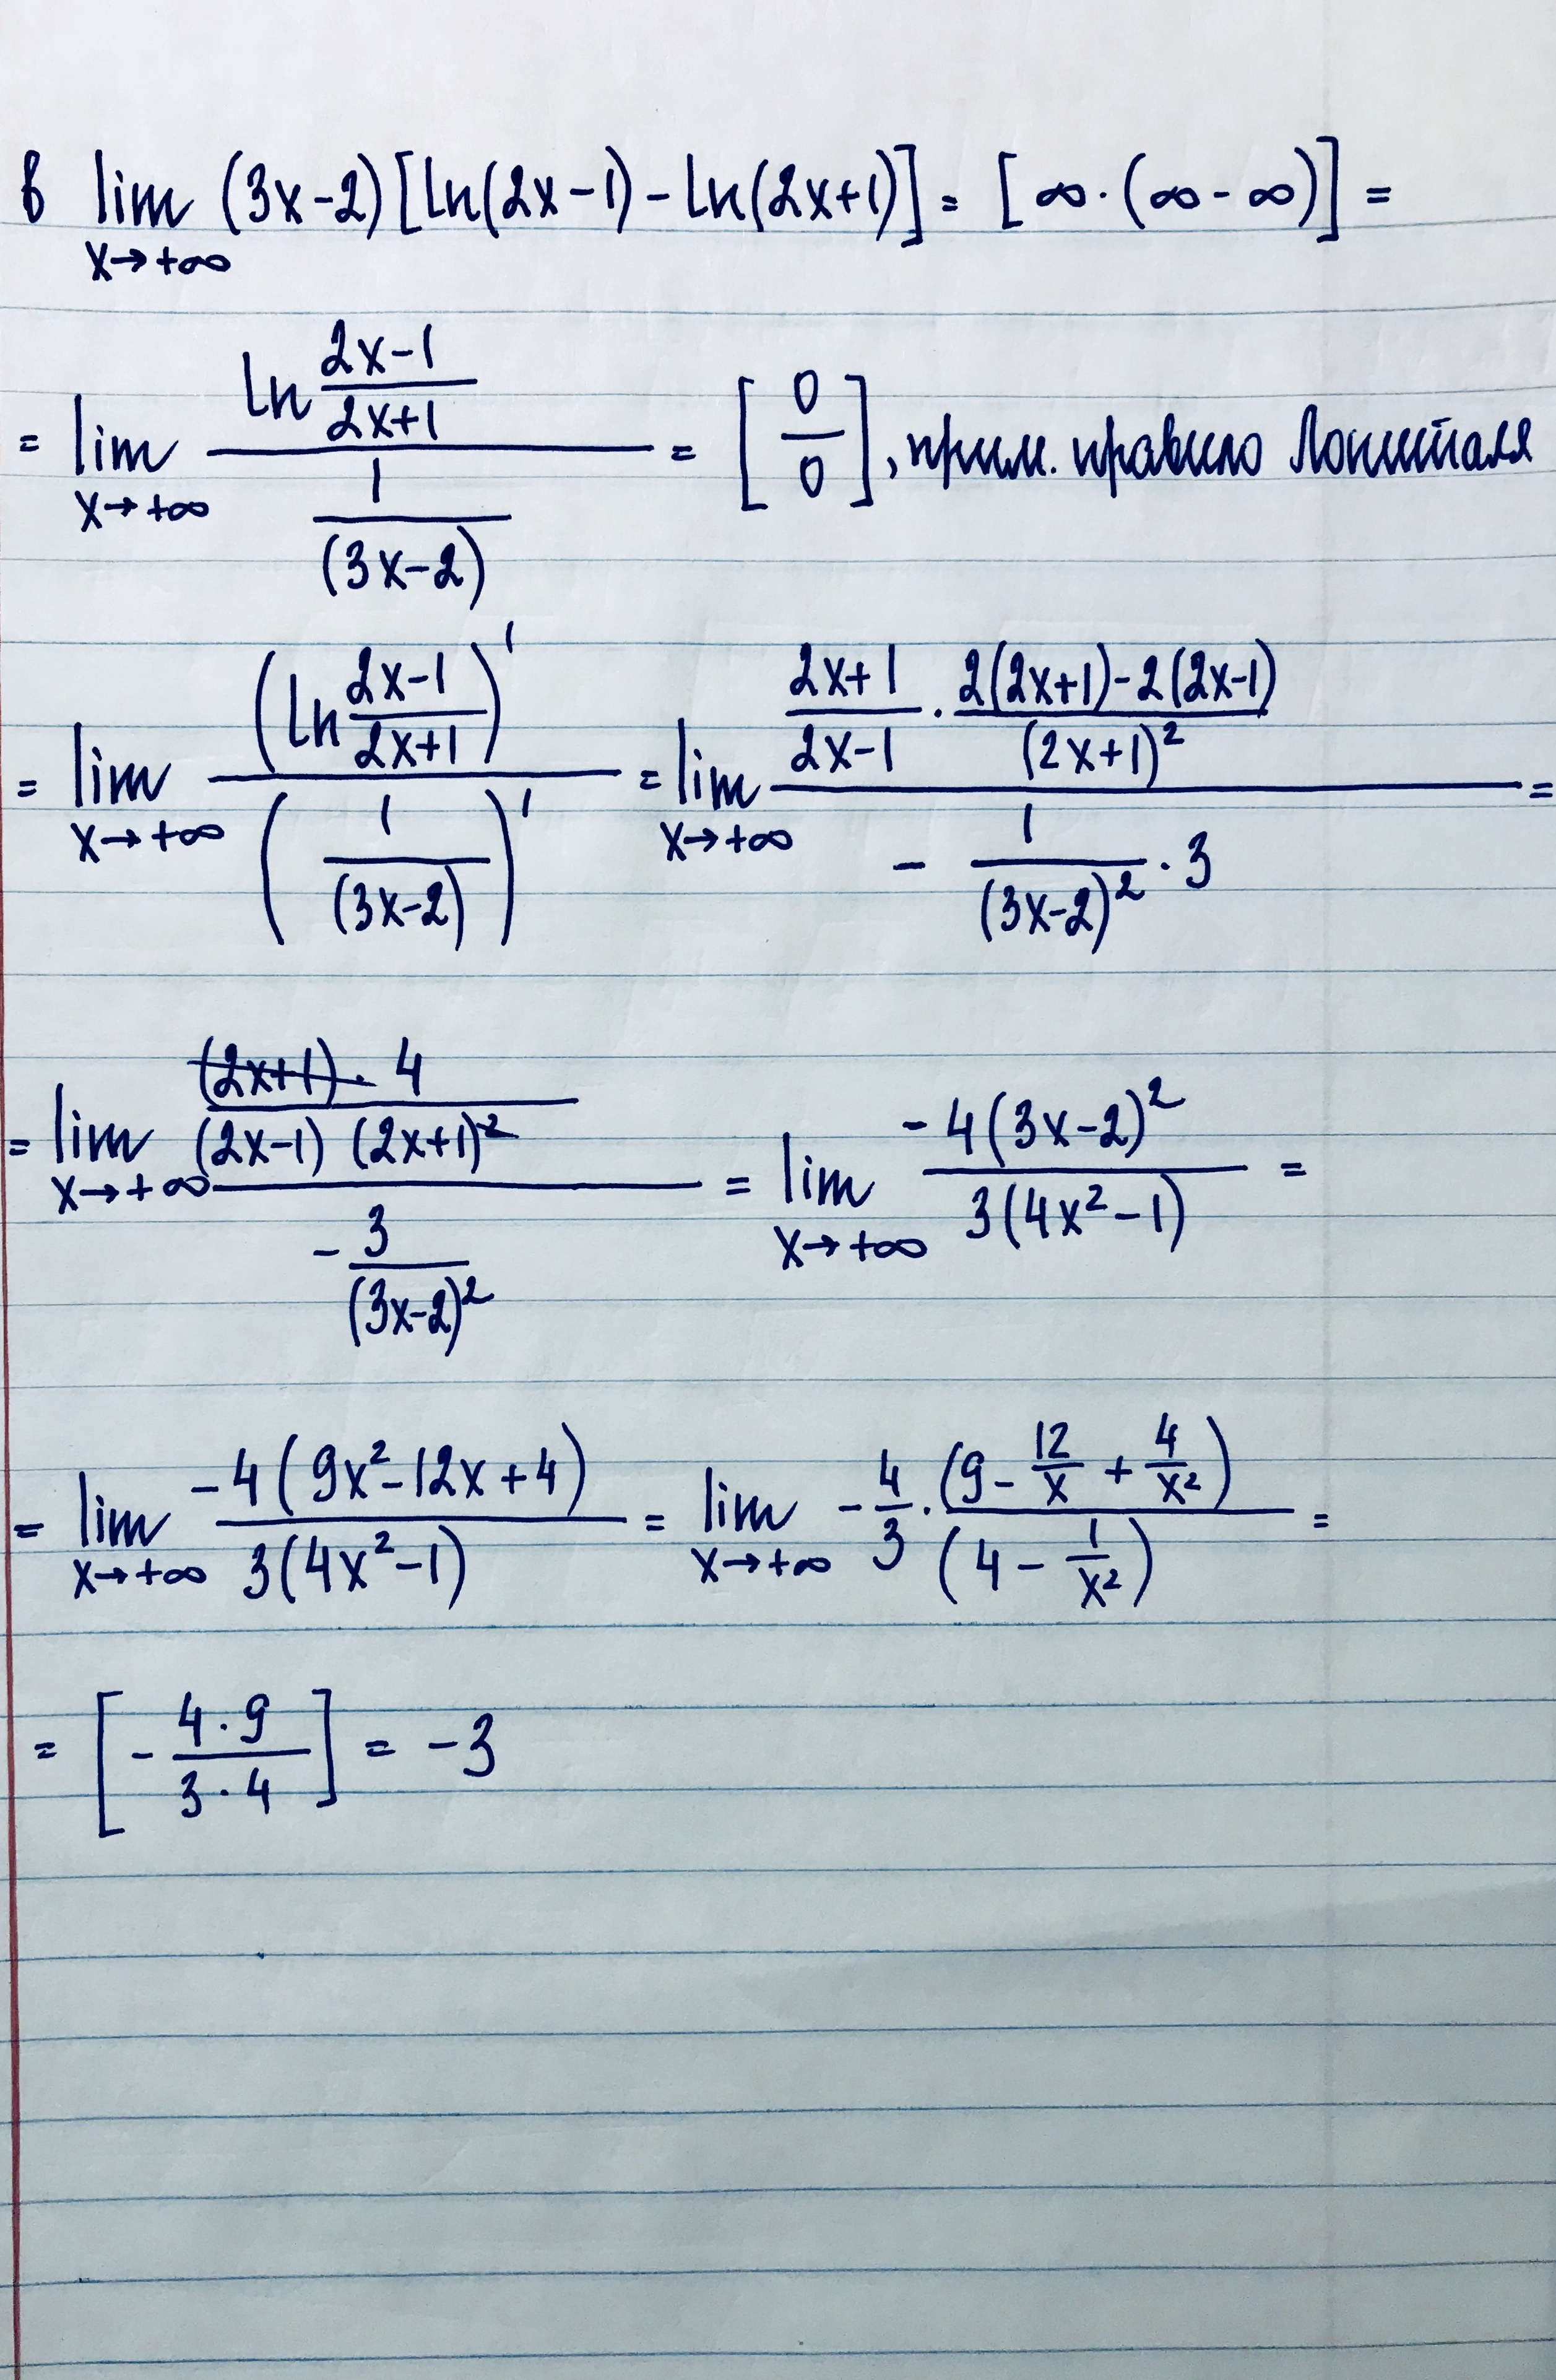 в lim x→+∞ (3x-2)[ln(2x-1)-ln(2x+1)] = [∞·(∞-∞)] =
= lim x→+∞ (ln (2x-1)/(2x+1)) / (1/(3x-2)) = [0/0], прим. правило Лопиталя
= lim x→+∞ (ln (2x-1)/(2x+1))' / (1/(3x-2))' = lim x→+∞ ((2x+1)/(2x-1) · (2(2x+1)-2(2x-1))/(2x+1)²) / (- 1/(3x-2)² · 3) =
= lim x→+∞ ((2x+1)·4 / (2x-1)(2x+1)²) / (- 3/(3x-2)²) = lim x→+∞ -4(3x-2)² / 3(4x²-1) =
= lim x→+∞ -4(9x²-12x+4) / 3(4x²-1) = lim x→+∞ - 4/3 · (9 - 12/x + 4/x²) / (4 - 1/x²) =
= [- 4·9 / 3·4] = -3